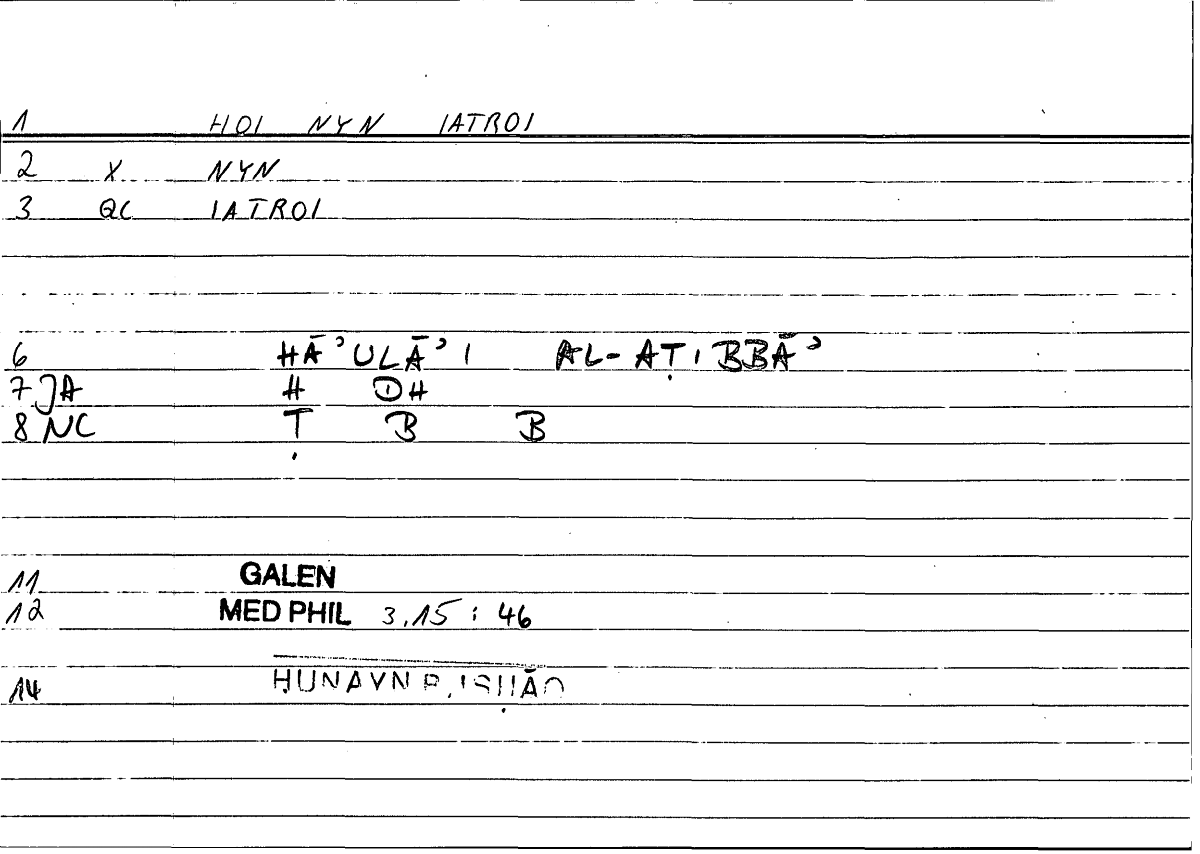 1 HOI NYN IATROI
2 X NYN
3 QC IATROI
6 HĀʾULĀʾI AL-AṬIBBĀʾ
7 JA H ḎH
8 NC Ṭ B B
11 GALEN
12 MED PHIL 3,15 : 46
14 ḤUNAYN B. ISḤĀQ